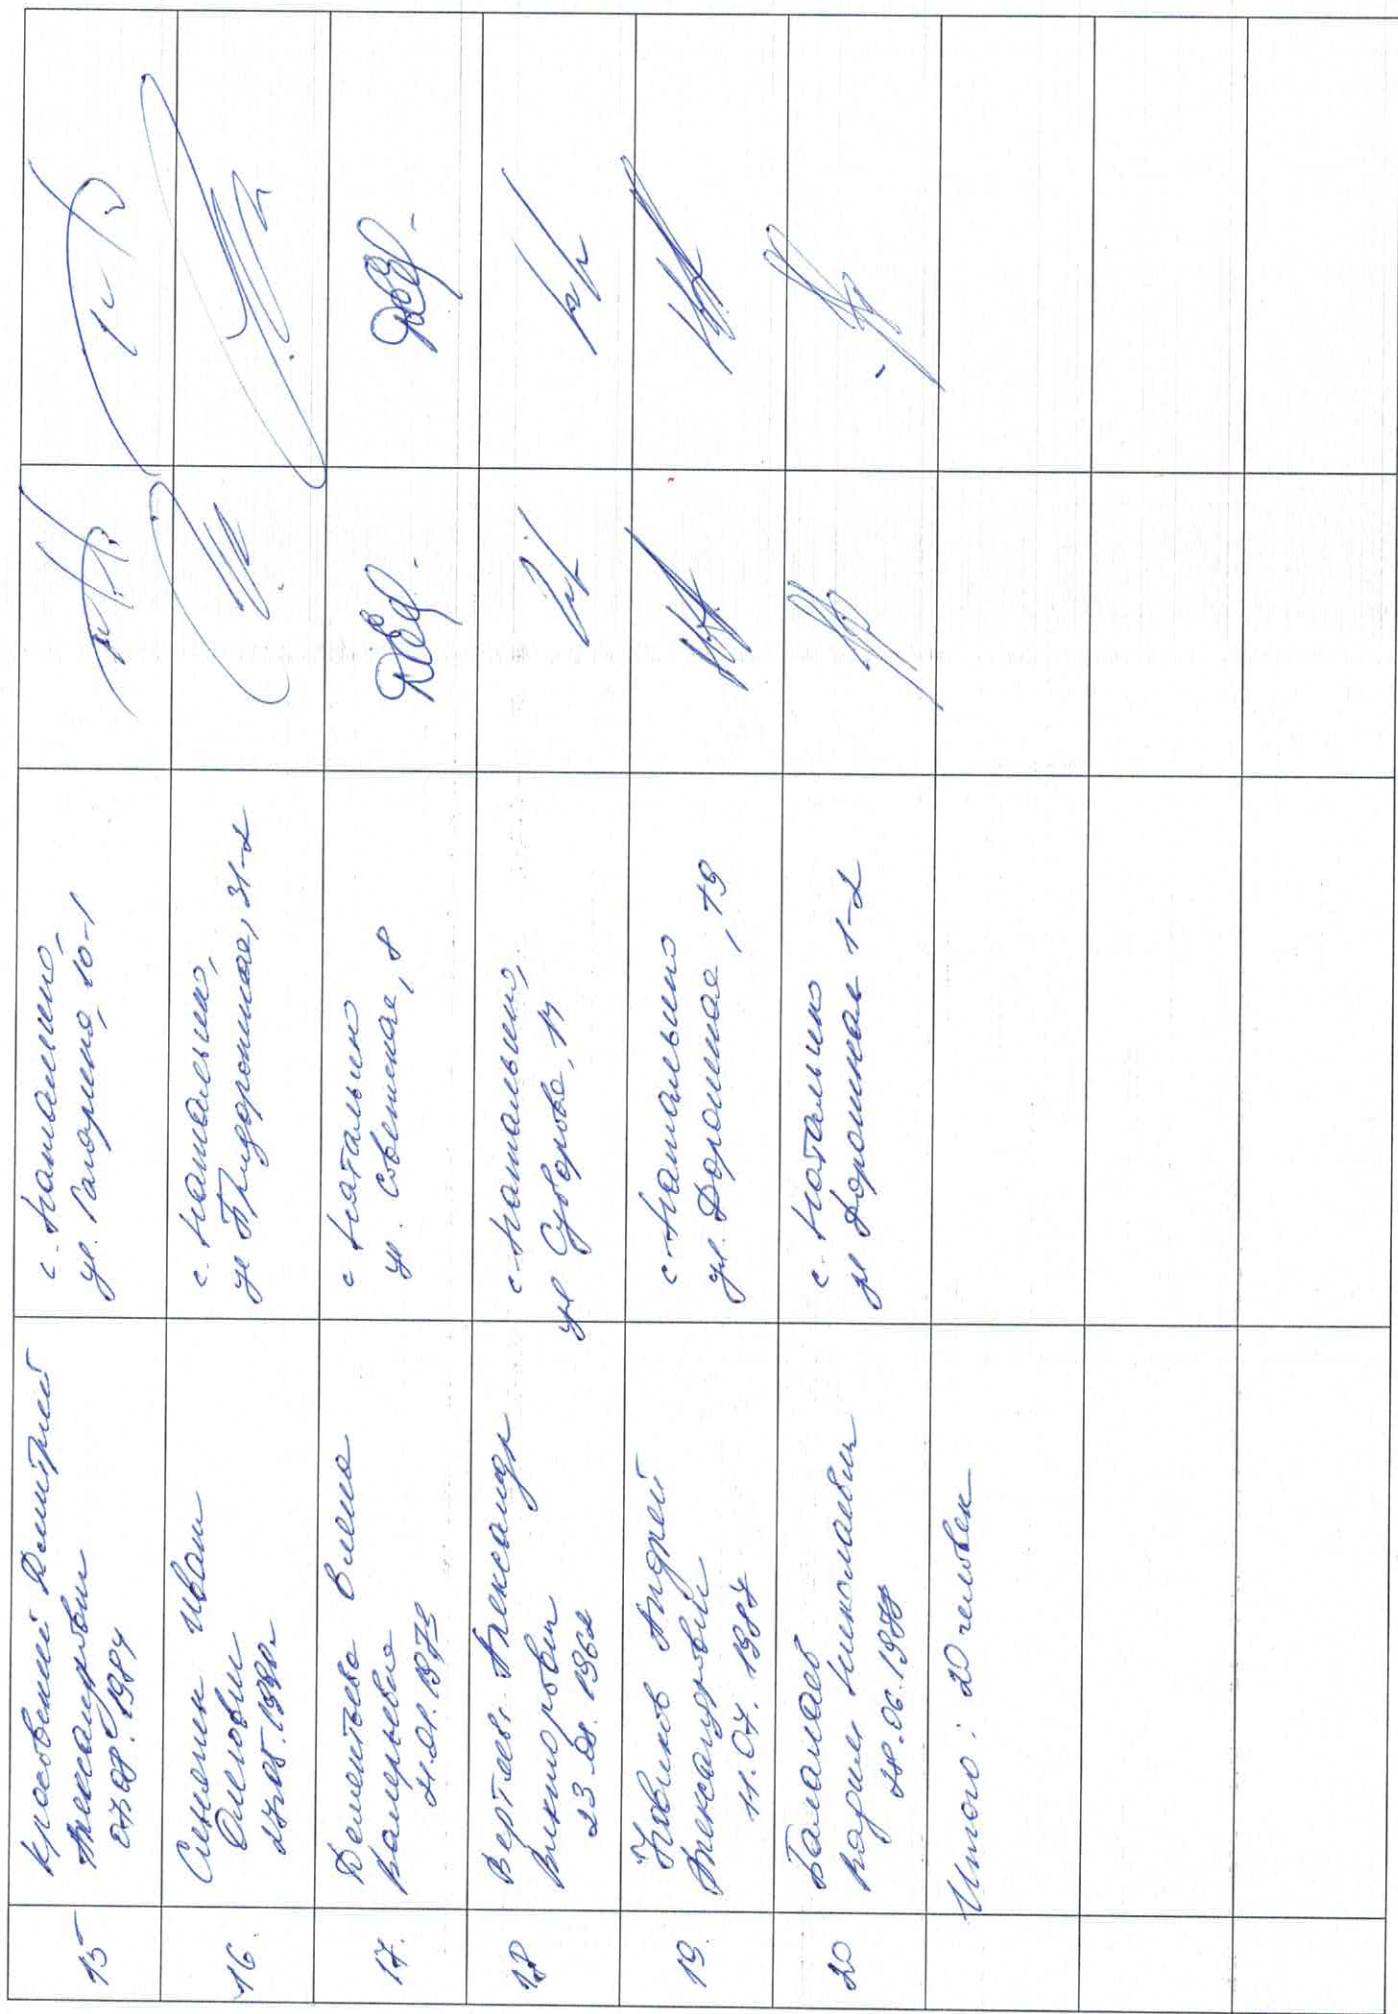 15
Красовский Дмитрий
Александрович
07.08.1984
с. Натальино,
ул. Гагарина, 10-1
16.
Иван
Олегович
с. Натальино,
ул Придорожная, 31-2
17.
Дементьева Елена
Валерьевна
21.01.1979
с Натальино
ул. Советская, 8
18
Вертаев Александр
Викторович
23.08.1962
с. Натальино,
ул Суворова, 14
19.
Новиков Андрей
Александрович
11.04.1987
с. Натальино
ул. Дорожная, 19
20
Баламаев
Николаевич
28.06.1978
с. Натальино
ул Дорожная 1-2
Итого: 20 человек